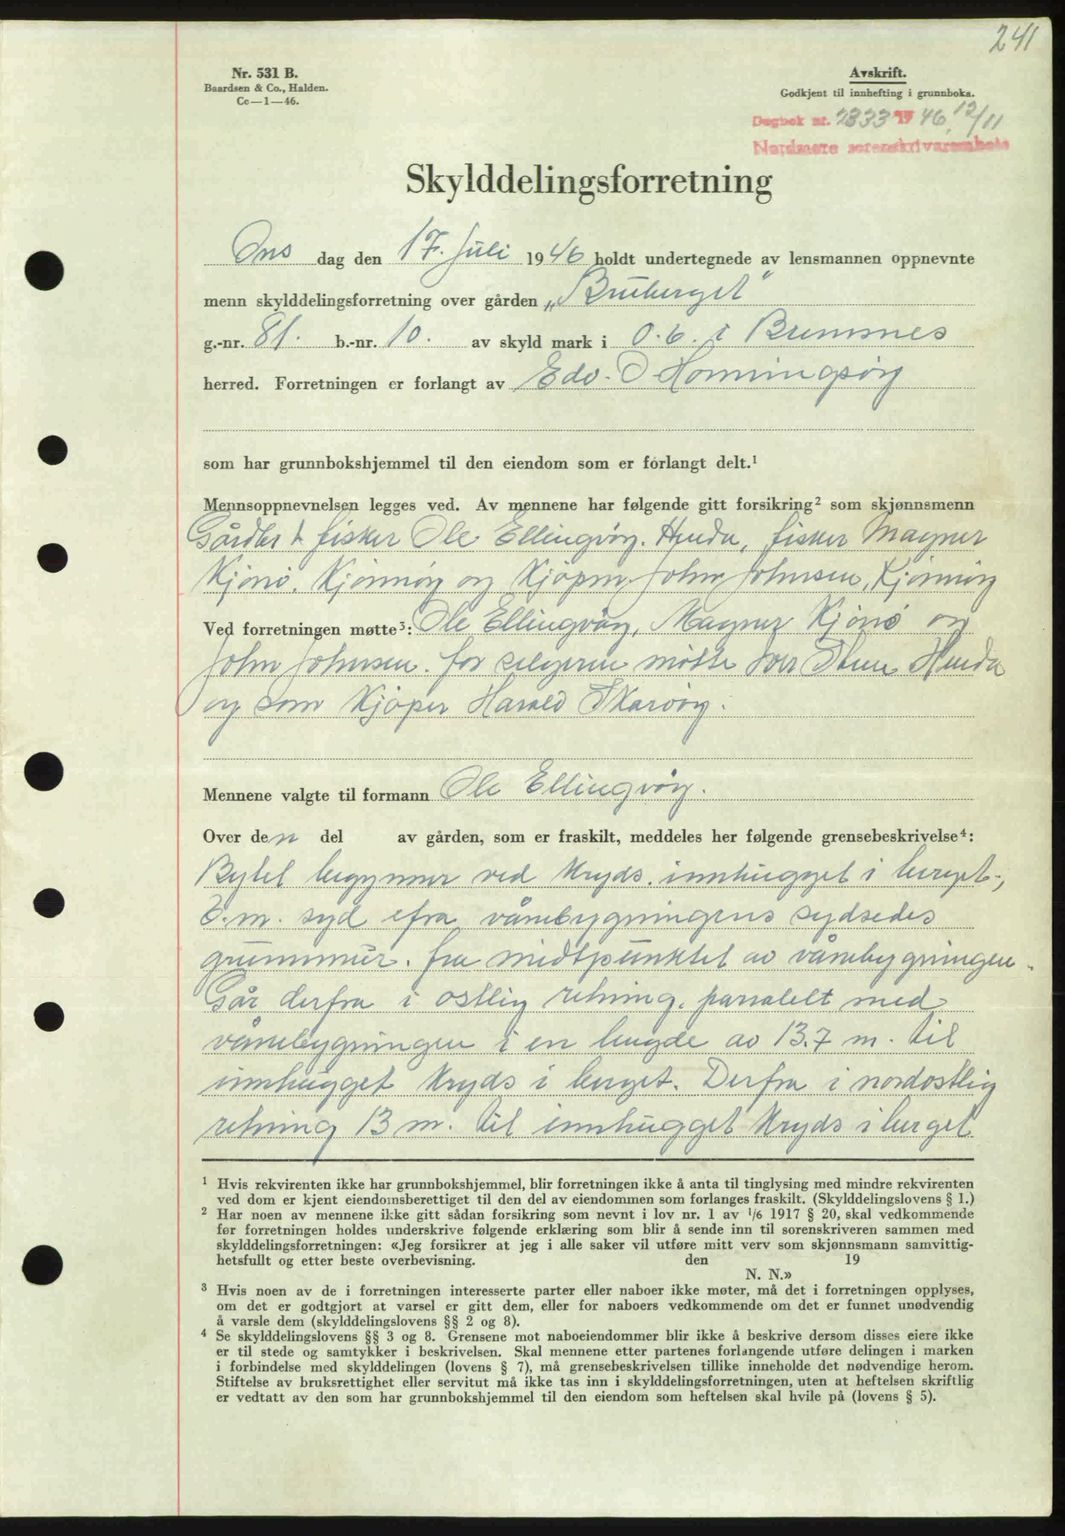 241
Nr. 531 B.
Baardsen & Co., Halden.
Cc—1—46.
Avskrift.
Godkjent til innhefting i grunnboka.
Dagbok nr. 2833 1946, 12/11
Nordmøre sorenskrivarembete
Skylddelingsforretning
Ons dag den 17. juli 1946 holdt undertegnede av lensmannen oppnevnte
menn skylddelingsforretning over gården „Bruberget"
g.-nr. 81. b.-nr. 10. av skyld mark i 0.6. i Bremsnes
herred. Forretningen er forlangt av Edv. O Honningsöy
som har grunnbokshjemmel til den eiendom som er forlangt delt.¹
Mennsoppnevnelsen legges ved. Av mennene har følgende gitt forsikring² som skjønnsmenn
Gårdbr & fisker Ole Ellingvåg. Henda, fisker Magner
Kjönö. Kjönnöy og Kjöpm. John Johnsen, Kjönnöy
Ved forretningen møtte³: Ole Ellingvåg, Magner Kjönö og
John Johnsen. for selgeren møtte Iver Henda
og som Kjöper Harald Skarvöy.
Mennene valgte til formann Ole Ellingvåg.
Over den del av gården, som er fraskilt, meddeles her følgende grensebeskrivelse⁴:
Bytet begynner ved kryds. innhugget i berget,
6.m. syd efra vånebygningens sydsedes
grunnmur. fra midtpunktet av vånebygningen.
Går derfra i ostlig retning, parralelt med
vånebygningen i en lengde av 13.7 m. til
innhugget kryds i berget. Derfra i nordostlig
retning 13 m. til innhugget kryds i berget.
¹ Hvis rekvirenten ikke har grunnbokshjemmel, blir forretningen ikke å anta til tinglysing med mindre rekvirenten
ved dom er kjent eiendomsberettiget til den del av eiendommen som forlanges fraskilt. (Skylddelingslovens § 1.)
² Har noen av mennene ikke gitt sådan forsikring som nevnt i lov nr. 1 av ¹/6 1917 § 20, skal vedkommende
før forretningen holdes underskrive følgende erklæring som blir å sende inn til sorenskriveren sammen med
skylddelingsforretningen: «Jeg forsikrer at jeg i alle saker vil utføre mitt verv som skjønnsmann samvittig-
hetsfullt og etter beste overbevisning. den 19
N. N.»
³ Hvis noen av de i forretningen interesserte parter eller naboer ikke møter, må det i forretningen opplyses,
om det er godtgjort at varsel er gitt dem, eller for naboers vedkommende om det er funnet unødvendig
å varsle dem (skylddelingslovens §§ 2 og 8).
⁴ Se skylddelingslovens §§ 3 og 8. Grensene mot naboeiendommer blir ikke å beskrive dersom disses eiere ikke
er til stede og samtykker i beskrivelsen. Skal mennene etter partenes forlangende utføre delingen i marken
i forbindelse med skylddelingen (lovens § 7), må grensebeskrivelsen tillike inneholde det nødvendige herom.
Stiftelse av bruksrettighet eller servitut må ikke tas inn i skylddelingsforretningen, uten at heftelsen skriftlig
er vedtatt av den som har grunnbokshjemmel til den eiendom som heftelsen skal hvile på (lovens § 5).